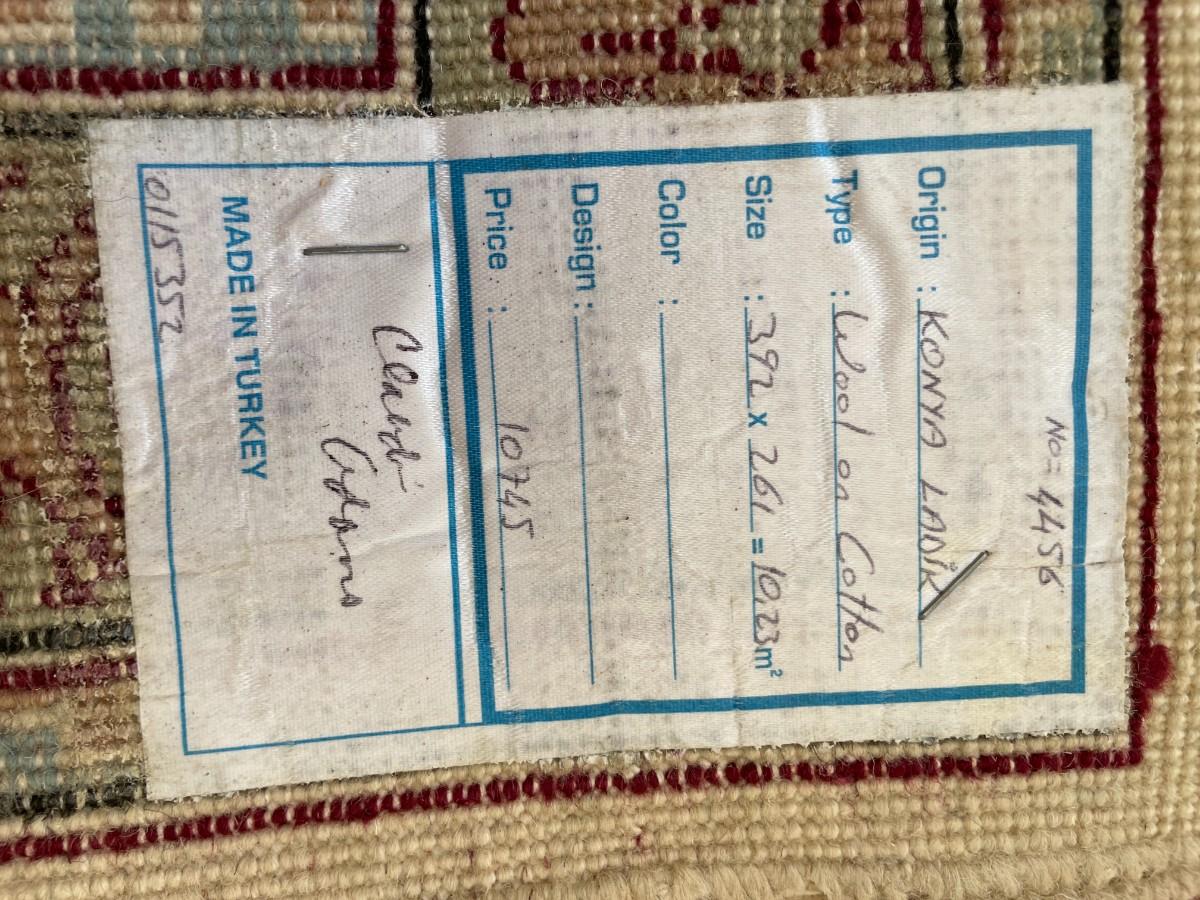 No= 4456
Origin : KONYA LADİK
Type : Wool on Cotton
Size : 392 x 261 = 10.23 m²
Color :
Design :
Price : 10745
MADE IN TURKEY
0115352